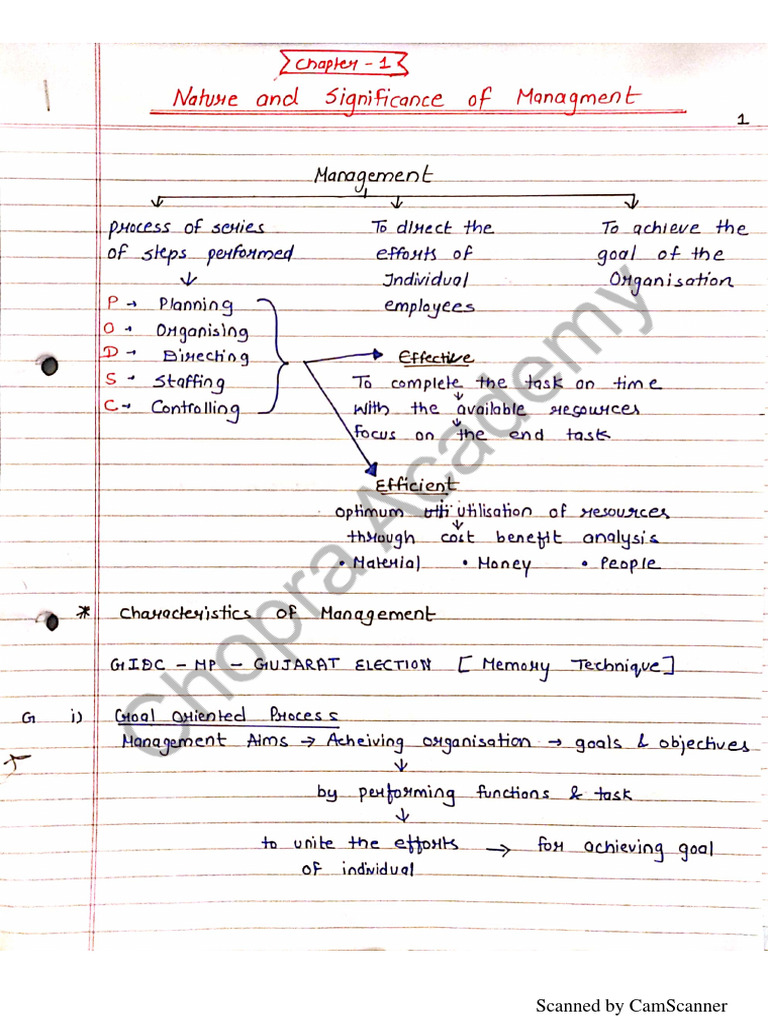 Chapter - 1
Nature and Significance of Managment
1
Management
Process of series
of steps performed
To direct the
efforts of
Individual
employees
To achieve the
goal of the
Organisation
P → Planning
O → Organising
D → Directing
S → Staffing
C → Controlling
Effective
To complete the task on time
with the available resources
focus on the end task
Efficient
optimum utilisation of resources
through cost benefit analysis
• Material • Money • People
* Characteristics of Management
GIDC - MP - GUJARAT ELECTION [Memory Technique]
G i) Goal Oriented Process
Management Aims → Acheiving organisation → goals & objectives
by performing functions & task
to unite the efforts → for achieving goal
of individual
Chopra Academy
Scanned by CamScanner